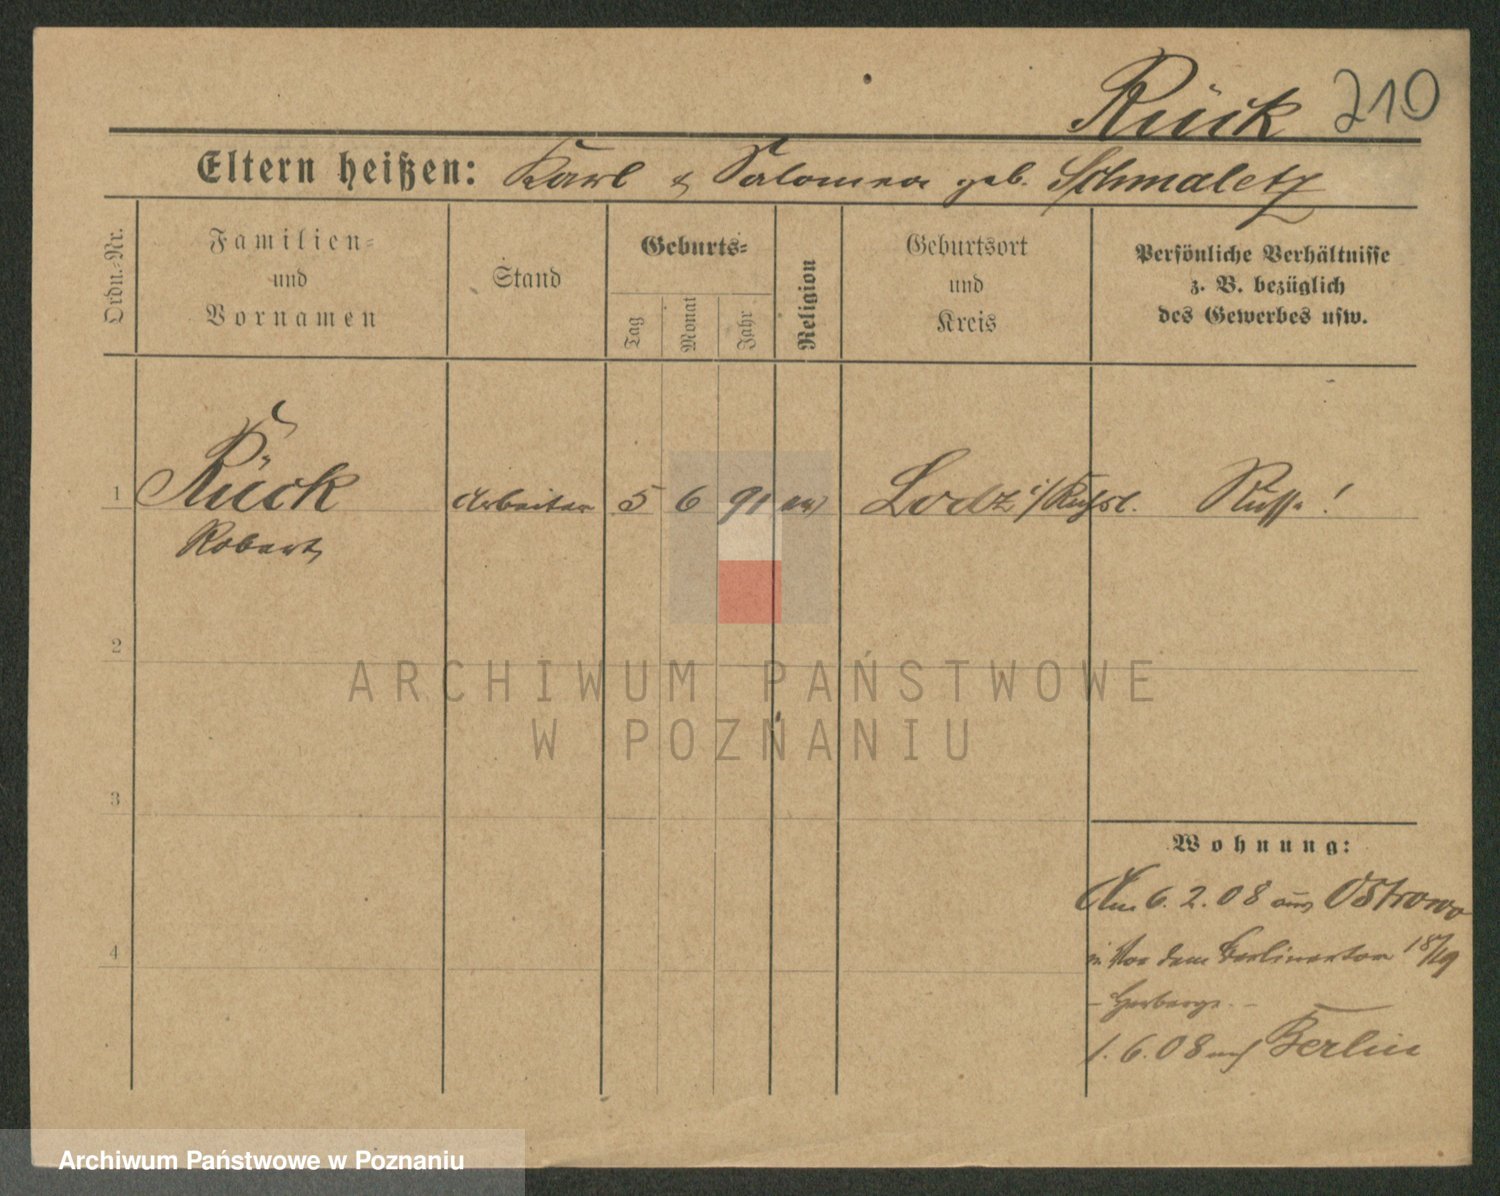 Rück 210
Eltern heißen: Karl & Salomea geb. Schmaletz
Ordn.-Nr.
Familien-
und
Vornamen
Stand
Geburts-
Tag
Monat
Jahr
Religion
Geburtsort
und
Kreis
Persönliche Verhältnisse
z. B. bezüglich
des Gewerbes usw.
1 Rück Arbeiter 5 6 91 ev Lodz i/Rußl. Russe!
Robert
2
ARCHIWUM PAŃSTWOWE
W POZNANIU
3
Wohnung:
Am 6. 2. 08 aus Ostrowo
4
in Vor dem Berlinertor 18/19
- Herberge. -
1. 6. 08 nach Berlin
Archiwum Państwowe w Poznaniu